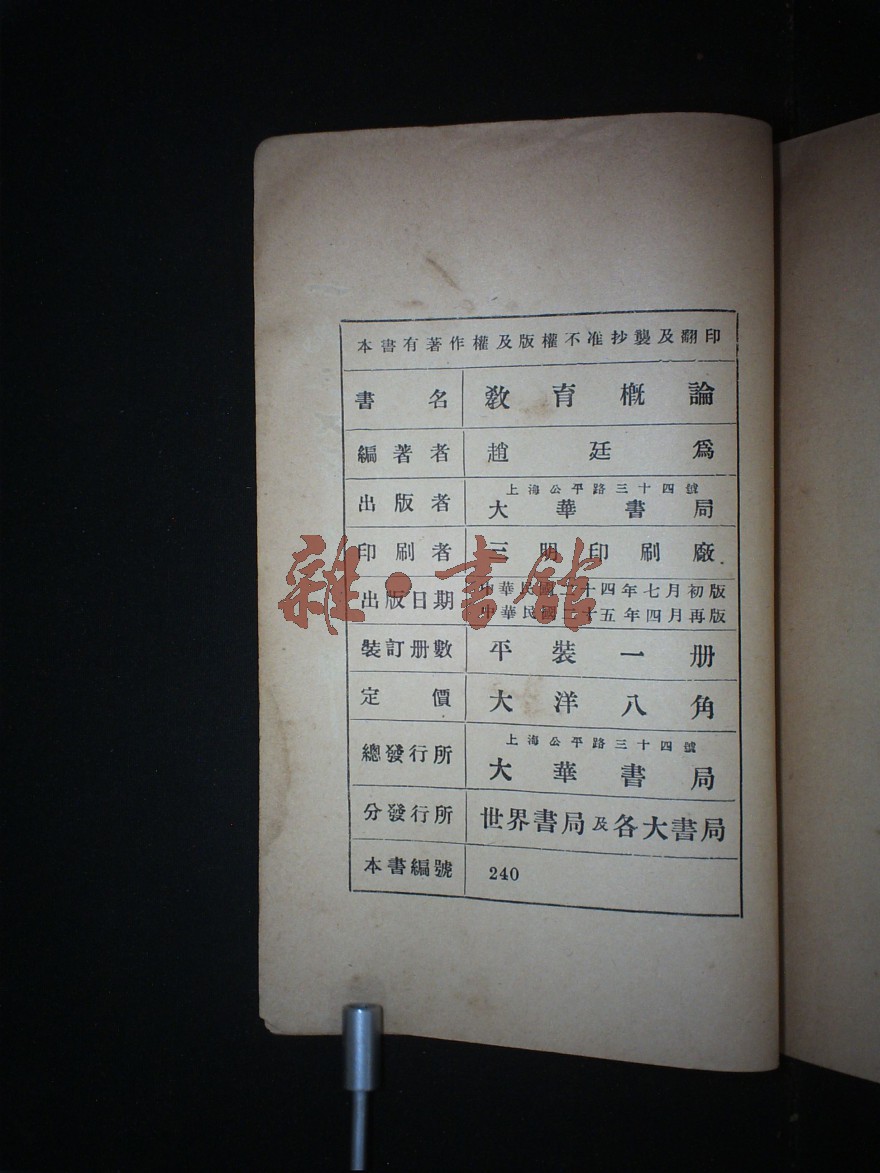 本書有著作權及版權不准抄襲及翻印
書名 教育概論
編著者 趙廷爲
出版者 上海公平路三十四號
大華書局
印刷者 三明印刷廠
出版日期 中華民國二十四年七月初版
中華民國二十五年四月再版
裝訂册數 平裝一册
定價 大洋八角
總發行所 上海公平路三十四號
大華書局
分發行所 世界書局及各大書局
本書編號 240
雜·書館